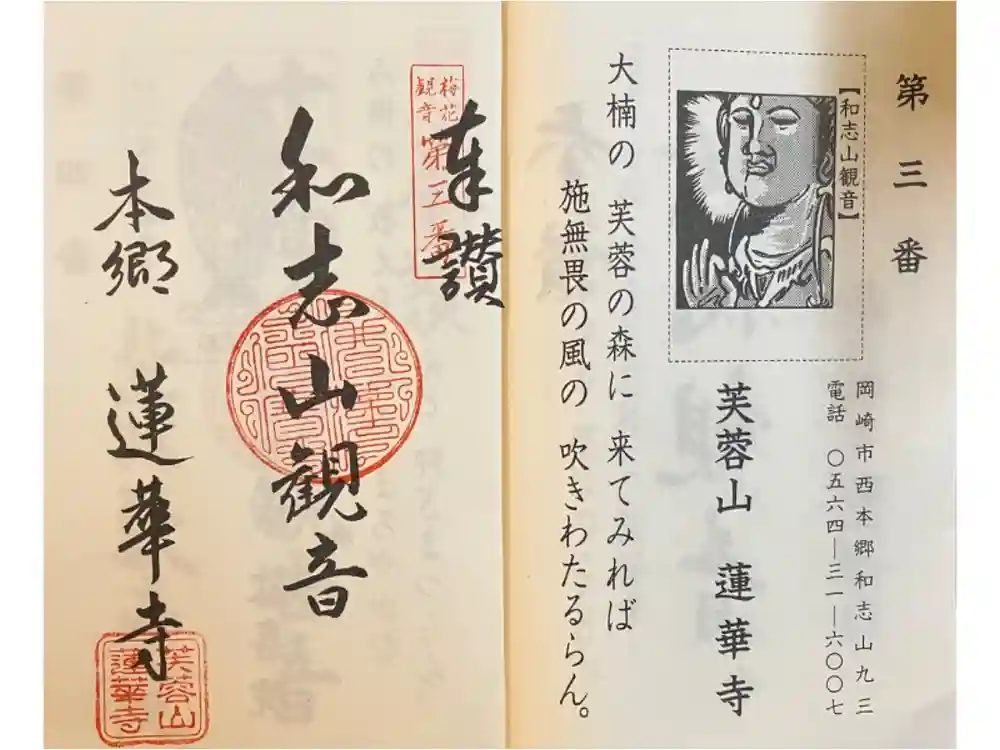 第三番
【和志山観音】
岡崎市西本郷和志山九三
電話 〇五六四―三一―六〇〇七
芙蓉山 蓮華寺
大楠の 芙蓉の森に 来てみれば
施無畏の風の 吹きわたるらん。
奉讃
梅花
観音
第三番
和志山観音
本郷 蓮華寺
芙蓉山
蓮華寺